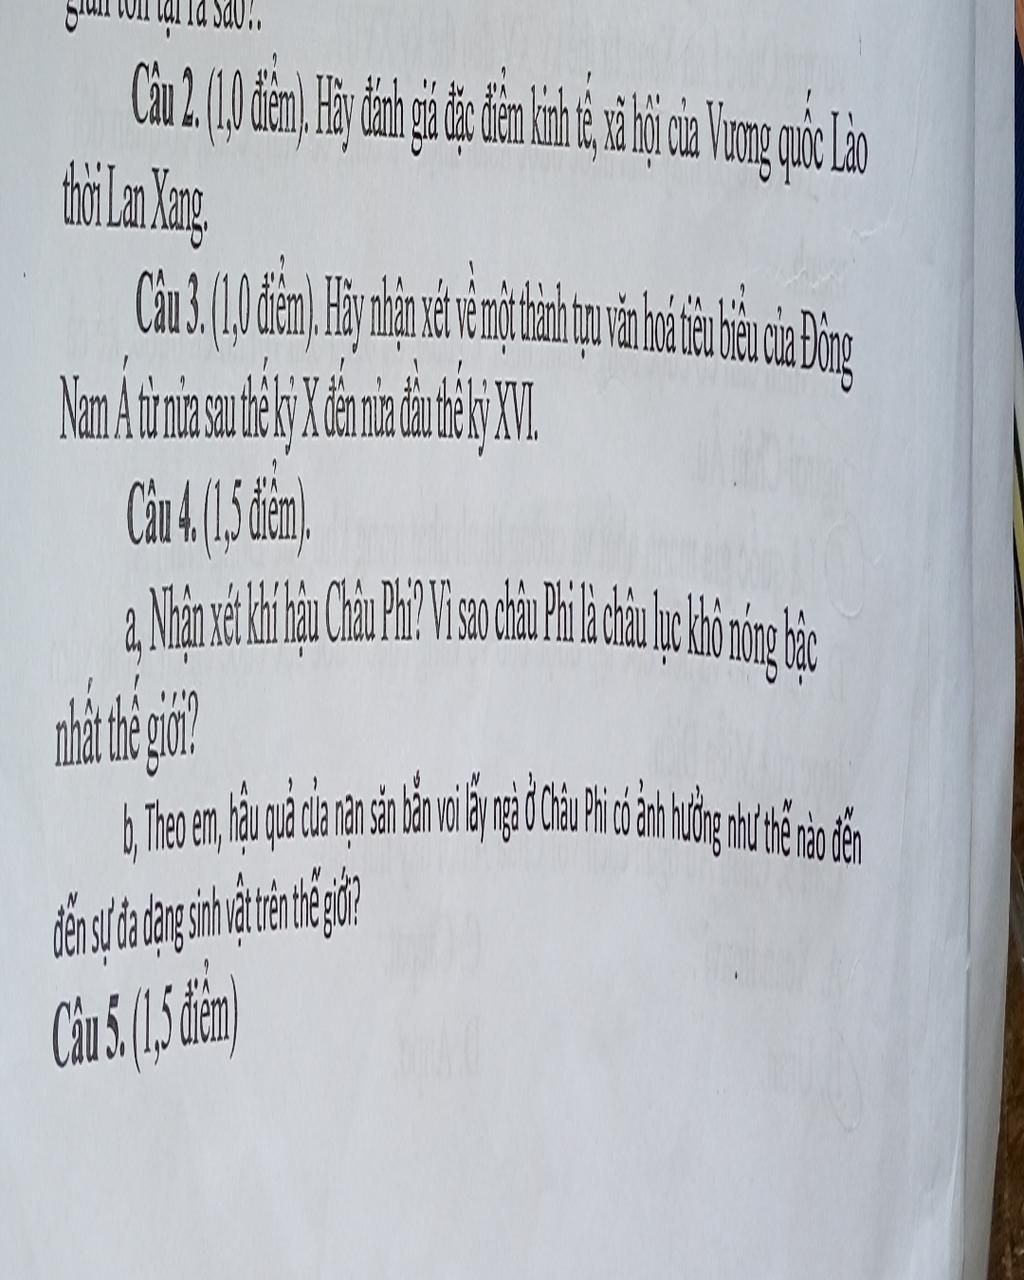 gian tồn tại ra sao?.
Câu 2. (1,0 điểm). Hãy đánh giá đặc điểm kinh tế, xã hội của Vương quốc Lào
thời Lan Xang.
Câu 3. (1,0 điểm). Hãy nhận xét về một thành tựu văn hoá tiêu biểu của Đông
Nam Á từ nửa sau thế kỷ X đến nửa đầu thế kỷ XVI.
Câu 4. (1,5 điểm).
a, Nhận xét khí hậu Châu Phi? Vì sao châu Phi là châu lục khô nóng bậc
nhất thế giới?
b, Theo em, hậu quả của nạn săn bắn voi lấy ngà ở Châu Phi có ảnh hưởng như thế nào đến
đến sự đa dạng sinh vật trên thế giới?
Câu 5. (1,5 điểm)